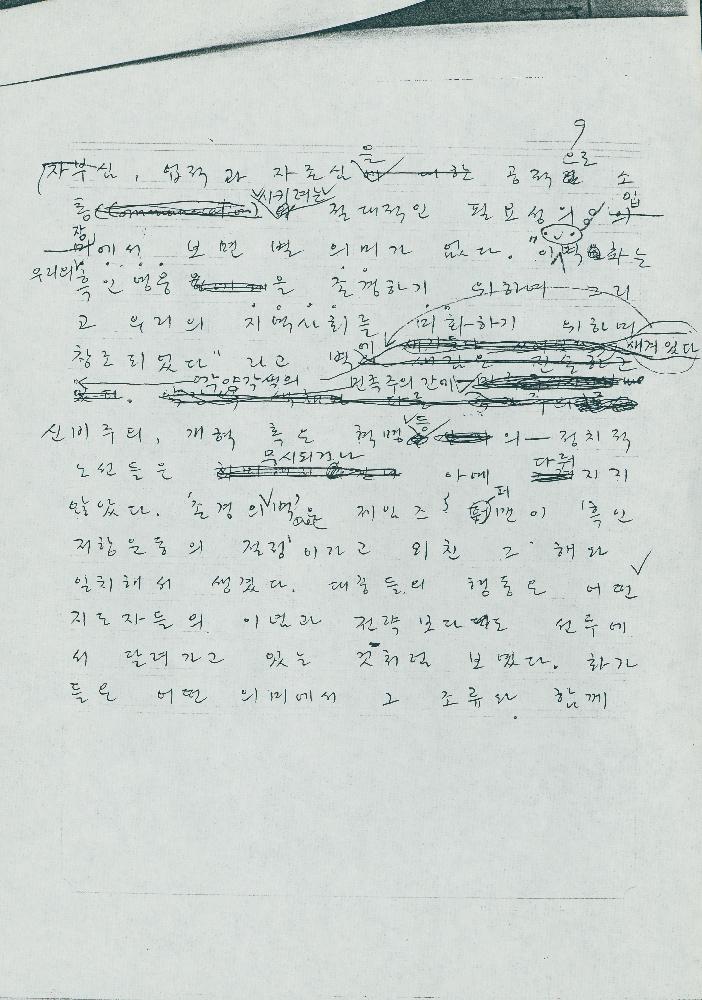 9
자부심, 업적과 자존심을 공적으로 소
통(Communication)시키려는 절대적인 필요성의 입
장에서 보면 별 의미가 없다. "이 벽화는
우리의 흑인영웅을 존경하기 위하며 그리
고 우리의 지역사회를 미화하기 위하며
창조되었다" 라고 벽에 새겨있다
각양각색의 민족주의 간에
신비주의, 개혁 혹은 혁명들의 정치적
노선들은 무시되거나 아예 다뤄지지
않았다. '존경의 벽'은 제임스 터피갠이 '흑인
저항운동의 절정'이라고 외친 그 해와
일치해서 생겼다. 대중들의 행동은 어떤
지도자들의 이념과 전략보다도 선두에
서 달려가고 있는 것처럼 보였다. 화가
들은 어떤 의미에서 그 조류와 함께